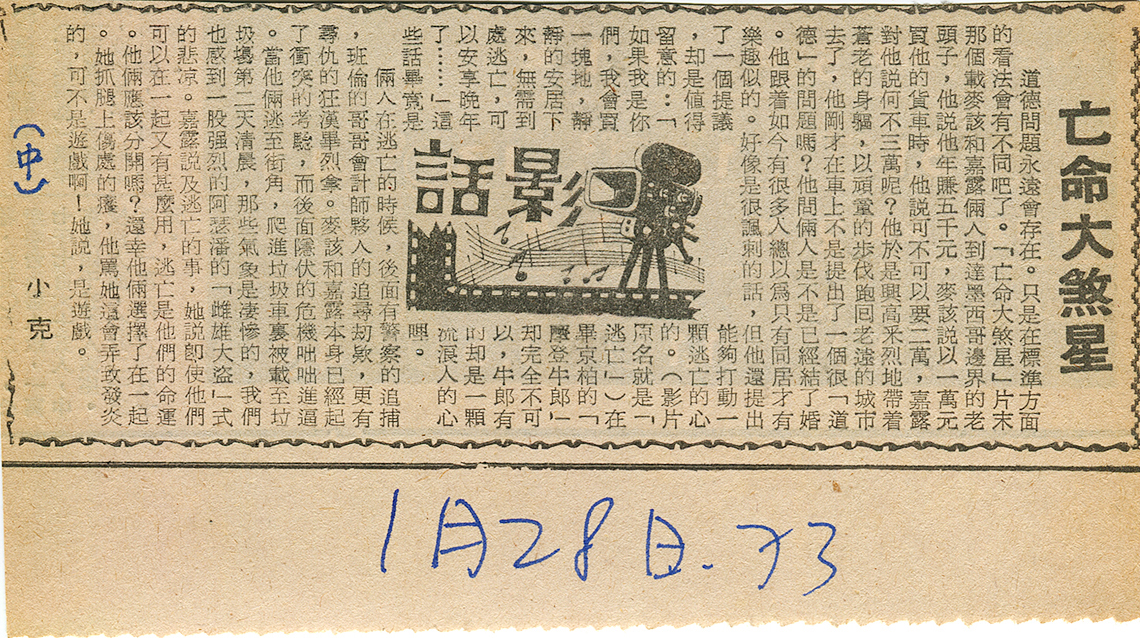 亡命大煞星
道德問題永遠會存在。只是在標準方面
的看法會有不同吧了。「亡命大煞星」片末
那個載麥該和嘉露倆人到達墨西哥邊界的老
頭子，他說他年賺五千元，麥該說以一萬元
買他的貨車時，他說可不可以要二萬，嘉露
對他說何不三萬呢？他於是興高釆烈地帶着
蒼老的身軀，以頑童的步伐跑回老遠的城市
去了，他剛才在車上不是提出了一個很「道
德」的問題嗎？他問倆人是不是已經結了婚
。他跟着如今有很多人總以爲只有同居才有
樂趣似的。好像是很諷刺的話，但他還提出
了一個提議
，却是値得
留意的：「
如果我是你
們，我會買
一塊地，靜
靜的安居下
來，無需到
處逃亡，可
以安享晚年
了……」這
些話畢竟是
影話
能夠打動一
顆逃亡的心
的。（影片
原名就是「
逃亡」）在
畢京柏的「
摩登牛郎」
却完全不可
以，牛郎有
的却是一顆
流浪人的心
哩。
倆人在逃亡的時候，後面有警察的追捕
，班倫的哥哥會計師夥人的追尋刧欵，更有
尋仇的狂漢畢烈拿。麥該和嘉露本身已經起
了衝突的考驗，而後面隱伏的危機咄咄進逼
。當他倆逃至街角，爬進垃圾車裏被載至垃
圾塲第二天清晨，那些氣象是凄慘的，我們
也感到一股强烈的阿瑟潘的「雌雄大盜」式
的悲凉。嘉露說及逃亡的事，她說卽使他們
可以在一起又有甚麼用，逃亡是他們的命運
。他倆應該分開嗎？還幸他倆選擇了在一起
。她抓腿上傷處的癢，他罵她這會弄致發炎
的，可不是遊戲啊！她說，是遊戲。
小克
（中）
1月28日.73